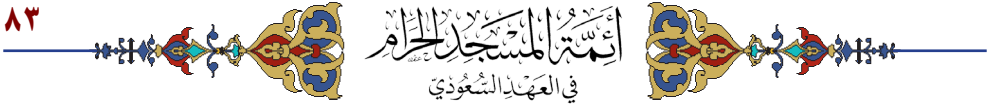 ٨٣
أَئِمَّةُ المَسْجِدِ الحَرَامِ
في العَهْدِ السُّعُودِيّ